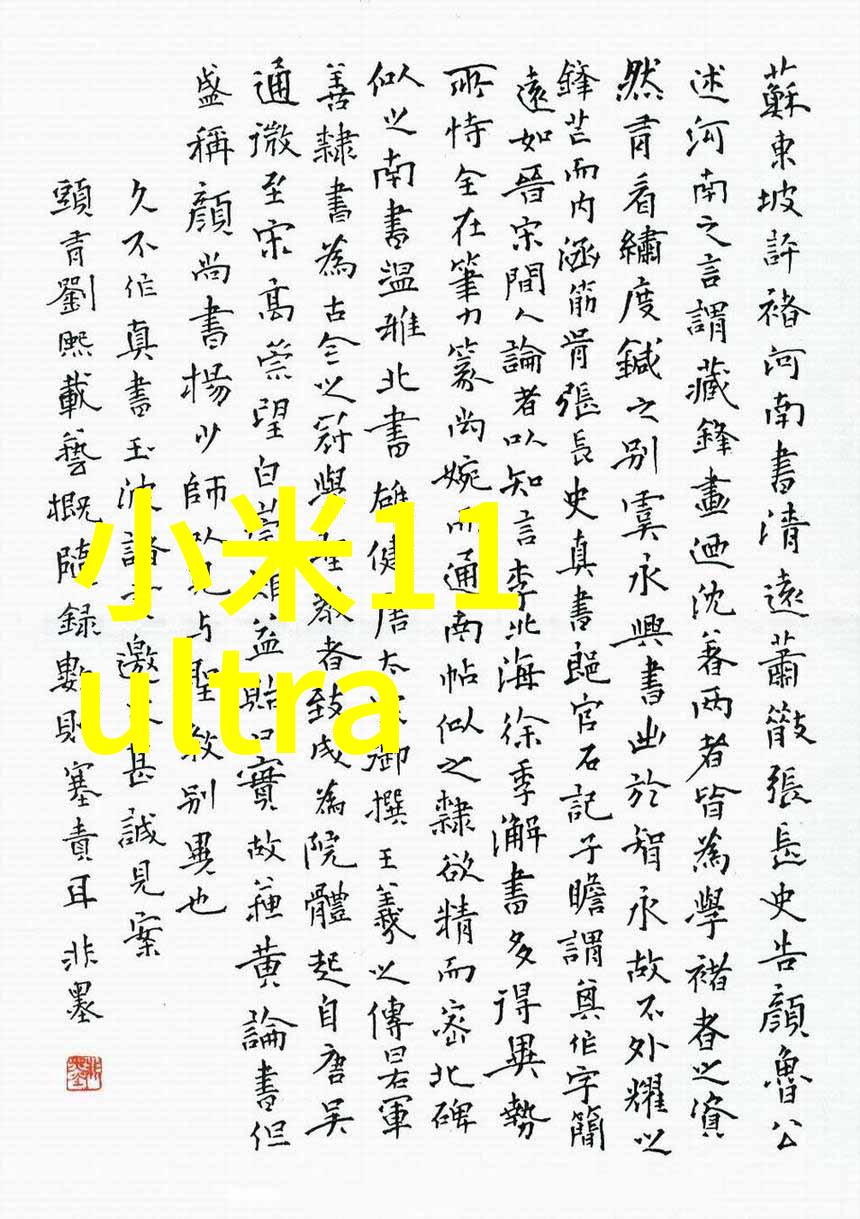 蘇東坡評褚河南書清遠蕭散張長史告顏魯公
述河南之言謂藏鋒畫迺沈著兩者皆為學褚者之資
然有看繡度鍼之別虞永興書出於智永故不外耀以
鋒芒而內涵筋骨張長史真書郎官石記子瞻謂其作字簡
遠如晉宋間人論者以知言李北海徐季海書多得異勢
所恃全在筆力篆尚婉而通南帖似之隸欲精而密北碑
似之南書溫雅北書雄健唐太宗御撰王羲之傳曰右軍
善隸書為古今之冠與聖教者致成為院體起自唐吳
通微至宋高崇望白益貽口實故蘇黃論書但
盛稱顏尚書楊少師以見與聖教別異也
久不作真書玉波諸邀甚誠見案
頭有劉熙載藝概隨錄數則塞責耳 非墨
小米11
ultra